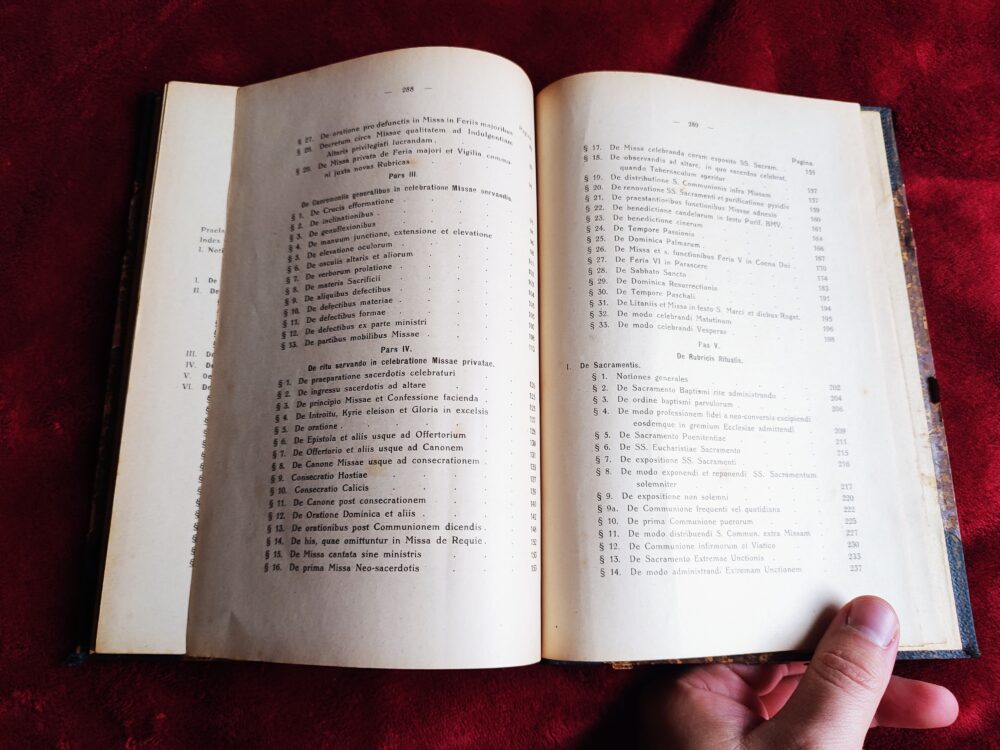 Index
I. Noti
I. De
II. De
III. De
IV. De
V. De
VI. De
— 288 —
§ 27. De oratione pro defunctis in Missa in Feriis majoribus
§ 28. Decretum circa Missae qualitatem ad Indulgentiam
Altaris privilegiati lucrandam
§ 29. De Missa privata de Feria majori et Vigilia commu-
ni juxta novas Rubricas
Pars III.
De Caeremoniis generalibus in celebratione Missae servandis.
§ 1. De Crucis efformatione
§ 2. De inclinationibus
§ 3. De genuflexionibus
§ 4. De manuum junctione, extensione et elevatione
§ 5. De elevatione oculorum
§ 6. De osculis altaris et aliorum
§ 7. De verborum prolatione
§ 8. De materia Sacrificii
§ 9. De aliquibus defectibus
§ 10. De defectibus materiae
§ 11. De defectibus formae
§ 12. De defectibus ex parte ministri
§ 13. De partibus mobilibus Missae
Pars IV.
De ritu servando in celebratione Missae privatae.
§ 1. De praeparatione sacerdotis celebraturi
§ 2. De ingressu sacerdotis ad altare
§ 3. De principio Missae et Confessione facienda
§ 4. De Introitu, Kyrie eleison et Gloria in excelsis
§ 5. De oratione
§ 6. De Epistola et aliis usque ad Offertorium
§ 7. De Offertorio et aliis usque ad Canonem
§ 8. De Canone Missae usque ad consecrationem
§ 9. Consecratio Hostiae
§ 10. Consecratio Calicis
§ 11. De Canone post consecrationem
§ 12. De Oratione Dominica et aliis
§ 13. De orationibus post Communionem dicendis
§ 14. De his, quae omittuntur in Missa de Requie
§ 15. De Missa cantata sine ministris
§ 16. De prima Missa Neo-sacerdotis
— 289 —
Pagina
§ 17. De Missa celebranda coram exposito SS. Sacram.
§ 18. De observandis ad altare, in quo sacerdos celebrat,
quando Tabernaculum aperitur
§ 19. De distributione S. Communionis infra Missam 157
§ 20. De renovatione SS. Sacramenti et purificatione pyxidis 157
§ 21. De praestantioribus functionibus Missae adnexis 159
§ 22. De benedictione candelarum in festo Purif. BMV. 160
§ 23. De benedictione cinerum 161
§ 24. De Tempore Passionis 164
§ 25. De Dominica Palmarum 166
§ 26. De Missa et s. functionibus Feria V in Coena Dni 167
§ 27. De Feria VI in Parasceve 170
§ 28. De Sabbato Sancto 174
§ 29. De Dominica Resurrectionis 183
§ 30. De Tempore Paschali 191
§ 31. De Litaniis et Missa in festo S. Marci et diebus Rogat. 194
§ 32. De modo celebrandi Matutinum 195
§ 33. De modo celebrandi Vesperas 198
Pas V.
De Rubricis Ritualis.
I. De Sacramentis.
§ 1. Notiones generales
§ 2. De Sacramento Baptismi rite administrando 202
§ 3. De ordine baptismi parvulorum 204
§ 4. De modo professionem fidei a neo-conversis excipiendi 206
eosdemque in gremium Ecclesiae admittendi
§ 5. De Sacramento Poenitentiae 209
§ 6. De SS. Eucharistiae Sacramento 211
§ 7. De expositione SS. Sacramenti 215
§ 8. De modo exponendi et reponendi SS. Sacramentum 216
solemniter 217
§ 9. De expositione non solemni 220
§ 9a. De Communione frequenti vel quotidiana 222
§ 10. De prima Communione puerorum 225
§ 11. De modo distribuendi S. Commun. extra Missam 227
§ 12. De Communione infirmorum et Viatico 230
§ 13. De Sacramento Extremae Unctionis 233
§ 14. De modo administrandi Extremam Unctionem 237